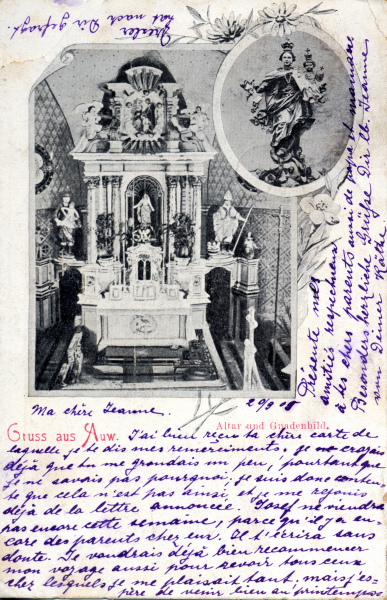 Drexler
hat nach Dir gefragt.
Ma chère Jeanne.
20/9 01
Altar und Gnadenbild.
Gruss aus Auw.
J'ai bien reçu ta chère carte de
laquelle je te dis mes remerciments, je croyais
déjà que tu me grondais un peu, pourtant que
je ne savais pas pourquoi; je suis donc conten-
te que cela n'est pas ainsi, et je me rejouis
déjà de la lettre annoncée. Josef ne viendra
pas encore cette semaine, parce qu'il y a en-
core des parents chez eux. Il t'écrira sans
doute. Je voudrais déjà bien recommencer
mon voyage aussi pour revoir tous ceux
chez lesquels je me plaisait tant, mais j'es-
père de venir bien au printemps.
Présente mes
amitiés respectueuses
à tes chers parents ainsi de papa et maman.
Besonders herzliche Grüsse Dir lb. Jeanne
von Deine Käthe